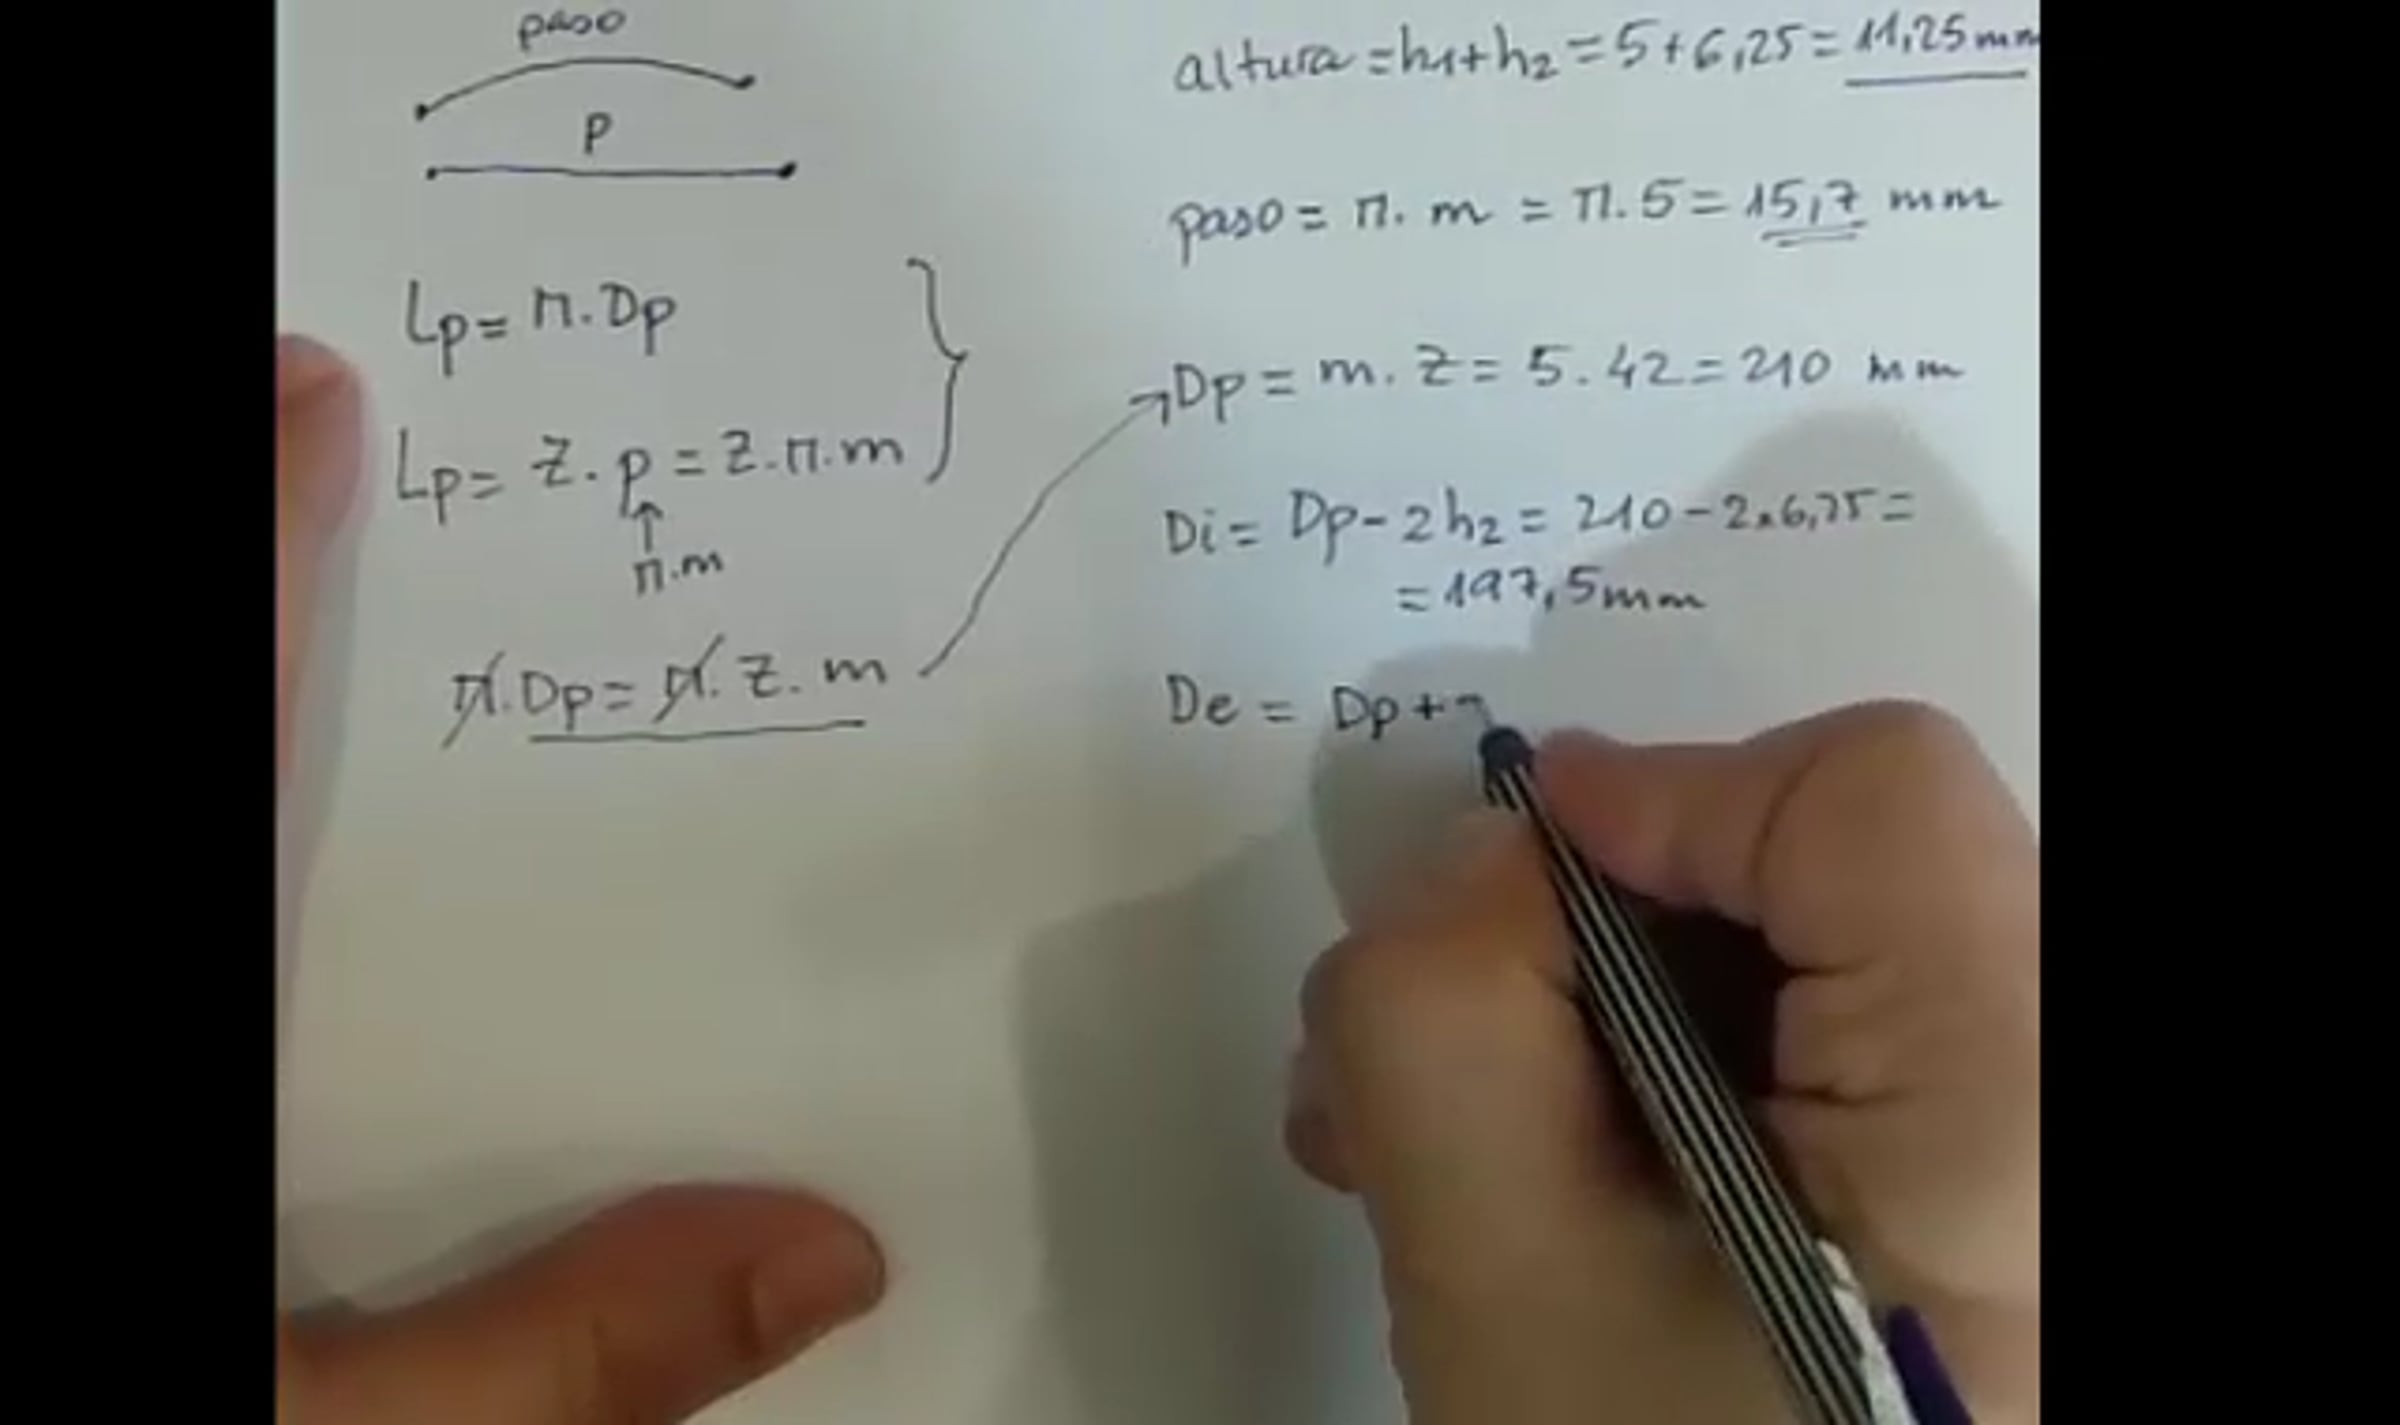 paso
P
Lp = π.Dp
Lp = Z.p = Z.π.m
↑
π.m
π.Dp = π.Z.m
altura = h1+h2 = 5+6,25 = 11,25 mm
paso = π.m = π.5 = 15,7 mm
Dp = m.Z = 5.42 = 210 mm
Di = Dp-2h2 = 210-2x6,25 =
= 197,5mm
De = Dp+